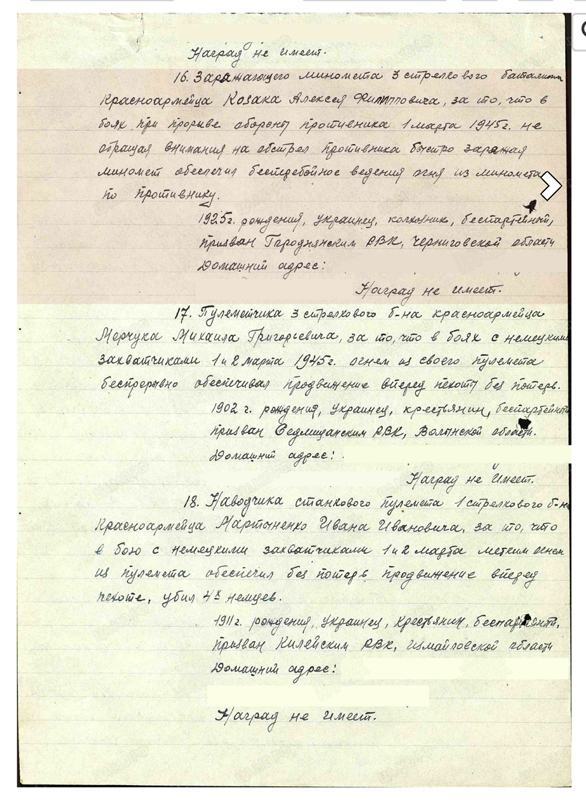 Наград не имеет.
16. Заражающего миномета 3 стрелкового баталиона
Красноармейца Козака Алексея Филипповича, за то, что в
боях при прорыве обороны противника 1 марта 1945г. не
обращая внимания на обстрел противника быстро заражая
миномет обеспечил бесперебойное ведения огня из миномета
по противнику.
1925г. рождения, украинец, колхозник, беспартейный,
призван Городнянским РВК, Черниговской области
Домашний адрес:
Наград не имеет.
17. Пулеметчика 3 стрелкового б-на красноармейца
Мерчука Михаила Григорьевича, за то, что в боях с немецкими
захватчиками 1 и 2 марта 1945г. огнем из своего пулемета
беспрерывно обеспечивал продвижение вперед пехоты без потерь.
1902 г. рождения, украинец, крестьянин, беспартейный
призван РВК, Волынской области.
Домашний адрес:
Наград не имеет.
18. Наводчика станкового пулемета 1 стрелкового б-на
Красноармейца Мартыненко Ивана Ивановича, за то, что
в бою с немецкими захватчиками 1 и 2 марта метким огнем
из пулемета обеспечил без потерь продвижение вперед
пехоте, убил 4х немцев.
1911г. рождения, украинец, крестьянин, беспартейный,
призван Килейским РВК, Измайловской области
Домашний адрес:
Наград не имеет.